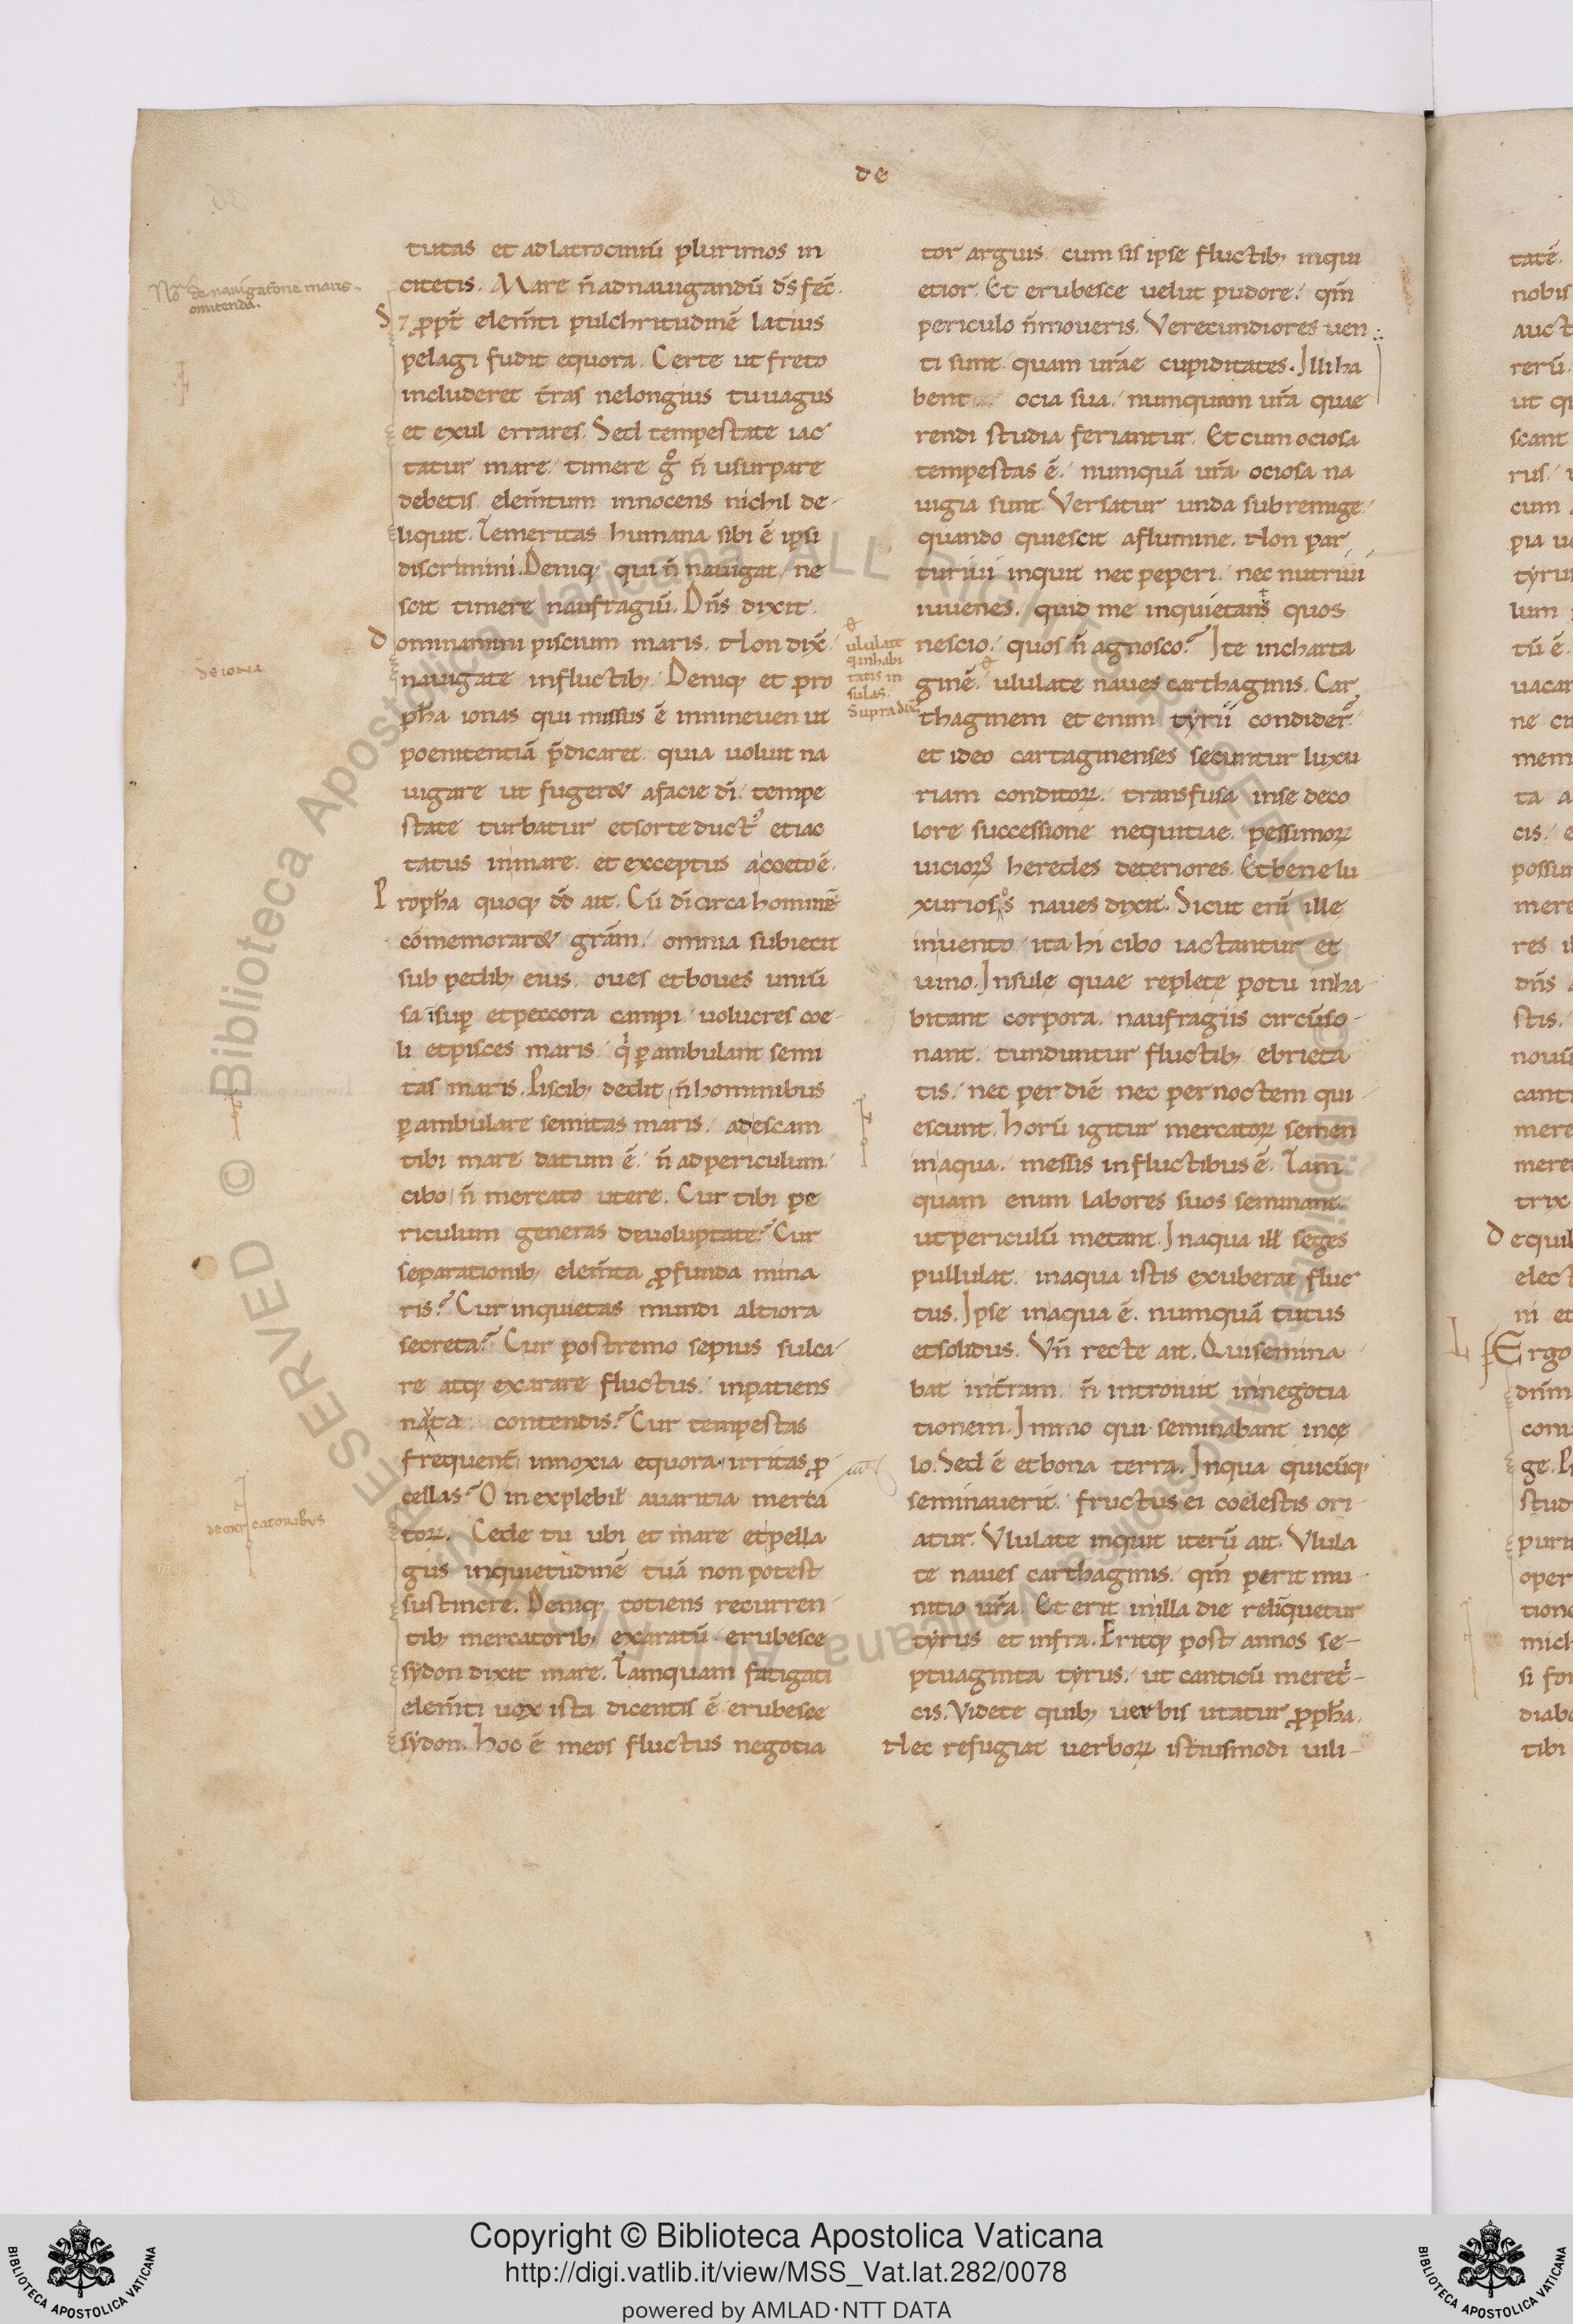 de
tutas et ad latrociniū plurimos in
citetis. Mare n̄ ad nauigandū d̄s fec̄.
S; ꝓpt̄ elem̄ti pulchritudinē latius
pelagi fudit equora. Certe ut freto
includeret t̄ras ne longius tu uagus
et exul errares. Sed tempestate iac
tatur mare. timere gͦ n̄ usurpare
debetis. elem̄tum innocens nichil de-
liquit. Temeritas humana sibi ē ipsi
discrimini. Deniq; qui n̄ nauigat. ne
scit timere naufragiū. Dn̄s dixit.
Dominamini piscium maris. Non dix̄.
nauigate in fluctib; Deniq; et pro
ph̄a ionas qui missus ē in nineuen ut
poenitentiā p̄dicaret. quia uoluit na
uigare ut fuger& a facie dī. tempe
state turbatur et sorte duct᾽ et iac
tatus in mare. et exceptus a coeto ē.
Proph̄a quoq; dd̄ ait. Cū dī circa hominē
cōmemorar& grām. omnia subiecit
sub pedib; eius. oues et boues uniū
sa īsuꝑ et peccora campi. uolucres coe-
li et pisces maris. qͥ ꝑambulant semi
tas maris. Piscib; dedit n̄ hominibus
ꝑambulare semitas maris. ad escam
tibi mare datum ē. n̄ ad periculum.
cibo n̄ mercato utere. Cur tibi pe
riculum generas de uoluptate? Cur
separationib; elem̄ta ꝓfunda mina
ris? Cur inquietas mundi altiora
secreta? Cur postremo sepius sulca-
re atq; exarare fluctus. inpatiens
nāta contendis? Cur tempestas
frequent̄ innoxia equora. irritas ꝓ
cellas? O inexplebil̄ auaritia mercā
torꝝ. Cede tu ubi et mare et pella
gus inquietudinē tuā non potest
sustinere. Deniq; totiens recurren
tib; mercatorib; exaratū erubesce
sydon dixit mare. Tamquam fatigati
elem̄ti uox ista dicentis ē erubesce
sydon. hoc ē meos fluctus negotia
tor arguis cum sis ipse fluctib; inqui
etior. Et erubesce uelut pudore. qm̄
periculo n̄ moueris. Verecundiores uen
ti sunt quam ur̄ae cupiditates. Illi ha
bent ocia sua. numquam ur̄a quae
rendi studia feriantur. Et cum ociosa
tempestas ē. numquā ur̄a ociosa na
uigia sunt. Versatur unda sub remige.
quando quiescit a flumine. Non par
turiui inquit nec peperi. nec nutriui
iuuenes. quid me inquietant quos
nescio. quos n̄ agnosco? Ite in charta
ginē. ululate naues carthaginis. Car
thaginem et enim tyrii condider̄.
et ideo cartaginenses secuntur luxu
riam conditorꝝ. transfusa in se deco
lore successione nequitiae. pessimorꝝ
uiciorꝝ heredes deteriores. Et bene lu
xuriosos naues dixit. Sicut enī ille
in uento. ita hi cibo iactantur et
uino. Insule quae replete potu inha-
bitant corpora. naufragiis circūso-
nant. tunduntur fluctib; ebrieta
tis. nec per diē nec per noctem qui-
escunt. Horū igitur mercatorꝝ semen
in aqua. messis in fluctibus ē. Tam
quam enim labores suos seminant
ut periculū metant. In aqua ill̄ seges
pullulat. in aqua istis exuberat fluc
tus. Ipse in aqua ē. numquā tutus
et solidus. Vn̄ recte ait. Qui semina
bat in t̄ram. n̄ introiuit in negotia
tionem. Immo qui seminabant in cę
lo. Sed ē et bona terra. In qua quicūq;
seminauerit. fructus ei coelestis ori-
atur. Vlulate inquit iterū ait. Vlula
te naues carthaginis. qm̄ perit mu-
nitio ur̄a. Et erit in illa die reliquetur
tyrus et infra. Eritq; post annos se-
ptuaginta tyrus. ut canticū meret̄-
cis. Videte quib; uerbis utatur ꝓph̄a.
Nec refugiat uerborꝝ istiusmodi uili-
de nauigatione maris
omittenda.
de iona
de mercatoribus
ululate
q̄ inhabi
tatis in
sulas.
supradix̄
Copyright © Biblioteca Apostolica Vaticana
http://digi.vatlib.it/view/MSS_Vat.lat.282/0078
powered by AMLAD·NTT DATA
BIBLIOTECA APOSTOLICA VATICANA
BIBLIOTECA APOSTOLICA VATICANA